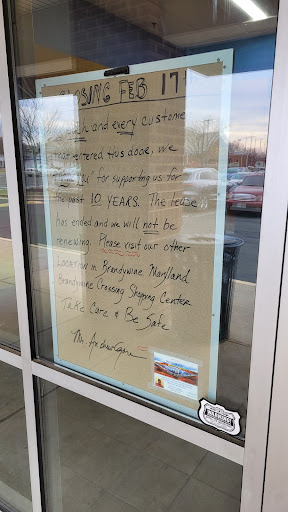 CLOSING FEB 17
each and every customer
that entered this door, we
Thank You" for supporting us for
the past 10 YEARS. The lease
has ended and we will not be
renewing. Please visit our other
Location in Brandywine Maryland
Brandywine Crossing Shopping Center
Take Care & Be Safe
Mr.